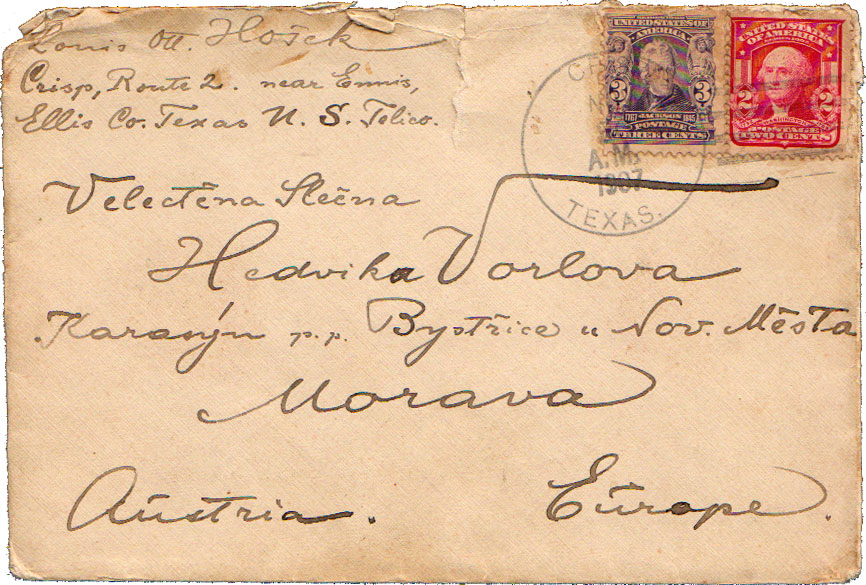 Louis Ott. Hošek
Crisp, Route 2. near Ennis,
Ellis Co. Texas U. S. Telico.
UNITED STATES OF
AMERICA
3 3
1767 JACKSON 1845
POSTAGE
THREE CENTS
UNITED STATES
OF AMERICA
2 2
WASHINGTON
POSTAGE
TWO CENTS
A.M.
1907
TEXAS.
Velectěna Slečna
Hedvika Vorlova
Karasýn p.p. Bystřice u Nov. Města
Morava
Austria. Europe.